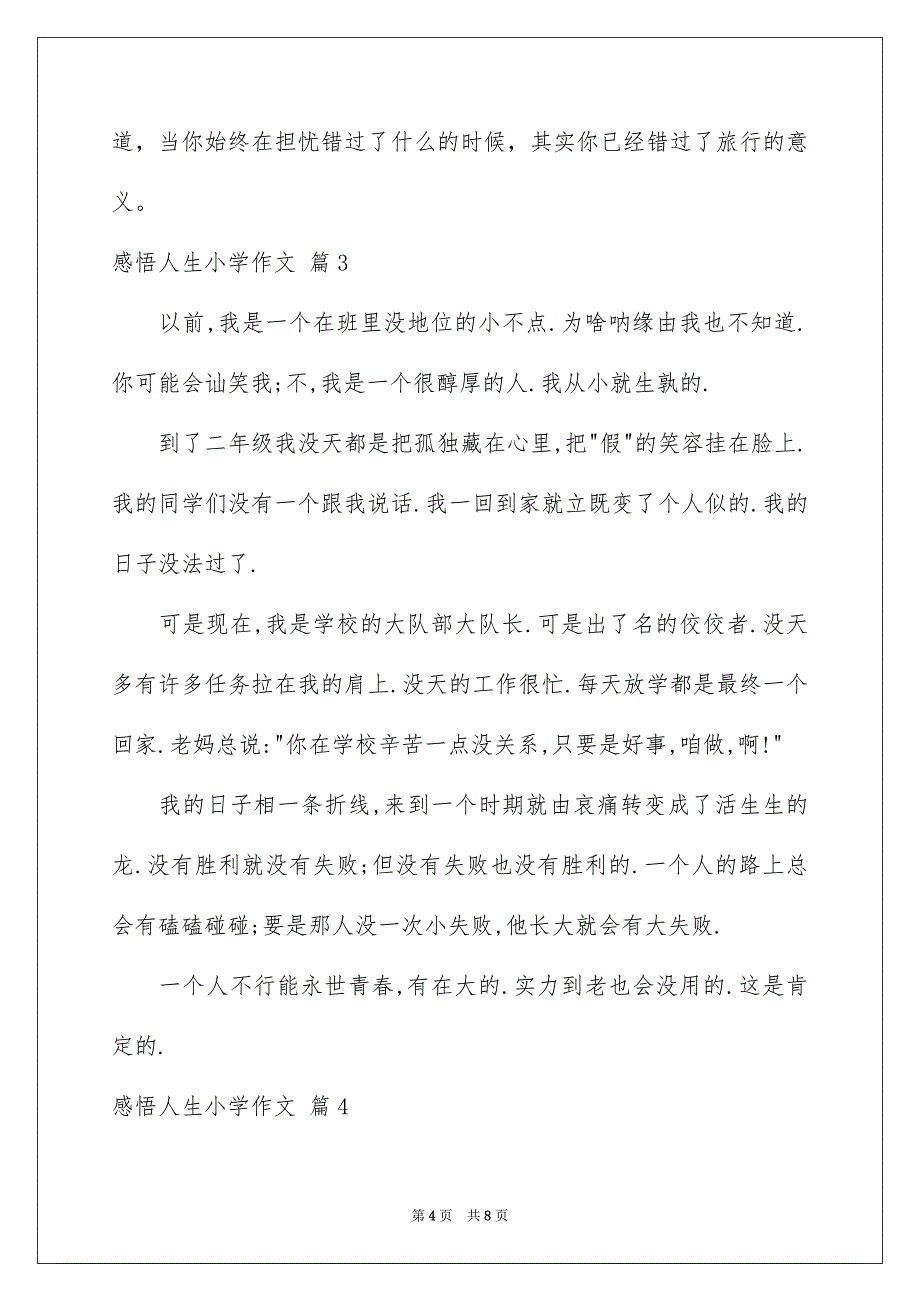 道，当你始终在担忧错过了什么的时候，其实你已经错过了旅行的意
义。
感悟人生小学作文 篇3
以前,我是一个在班里没地位的小不点.为啥呐缘由我也不知道.
你可能会讪笑我;不,我是一个很醇厚的人.我从小就生孰的.
到了二年级我没天都是把孤独藏在心里,把"假"的笑容挂在脸上.
我的同学们没有一个跟我说话.我一回到家就立既变了个人似的.我的
日子没法过了.
可是现在,我是学校的大队部大队长.可是出了名的佼佼者.没天
多有许多任务拉在我的肩上.没天的工作很忙.每天放学都是最终一个
回家.老妈总说:"你在学校辛苦一点没关系,只要是好事,咱做,啊!"
我的日子相一条折线,来到一个时期就由哀痛转变成了活生生的
龙.没有胜利就没有失败;但没有失败也没有胜利的.一个人的路上总
会有磕磕碰碰;要是那人没一次小失败,他长大就会有大失败.
一个人不行能永世青春,有在大的.实力到老也会没用的.这是肯
定的.
感悟人生小学作文 篇4
第4页 共8页